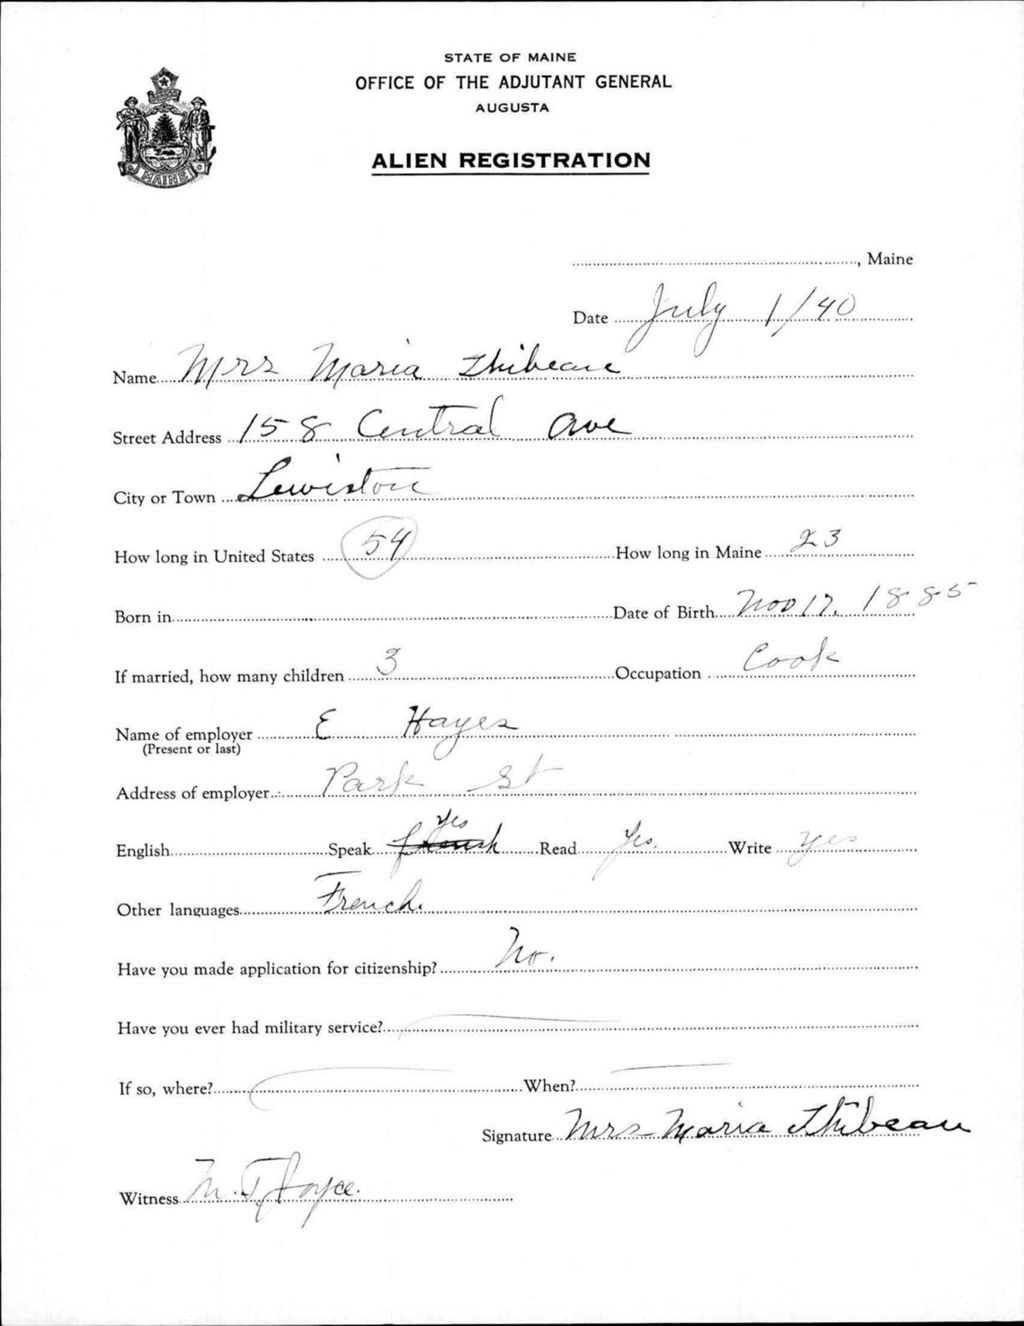 STATE OF MAINE
OFFICE OF THE ADJUTANT GENERAL
AUGUSTA
ALIEN REGISTRATION
MAINE
, Maine
Date July 1/40
Name Mrs Maria Thibeau
Street Address 158 Central Ave
City or Town Lewiston
How long in United States 54 How long in Maine 23
Born in Date of Birth Nov 17, 1885
If married, how many children 3 Occupation Cook
Name of employer E Hayes
(Present or last)
Address of employer Park St
English Speak French Yes Read Yes. Write Yes
Other languages French.
Have you made application for citizenship? No.
Have you ever had military service?
If so, where? When?
Signature Mrs Maria Thibeau
Witness M. T. Joyce.